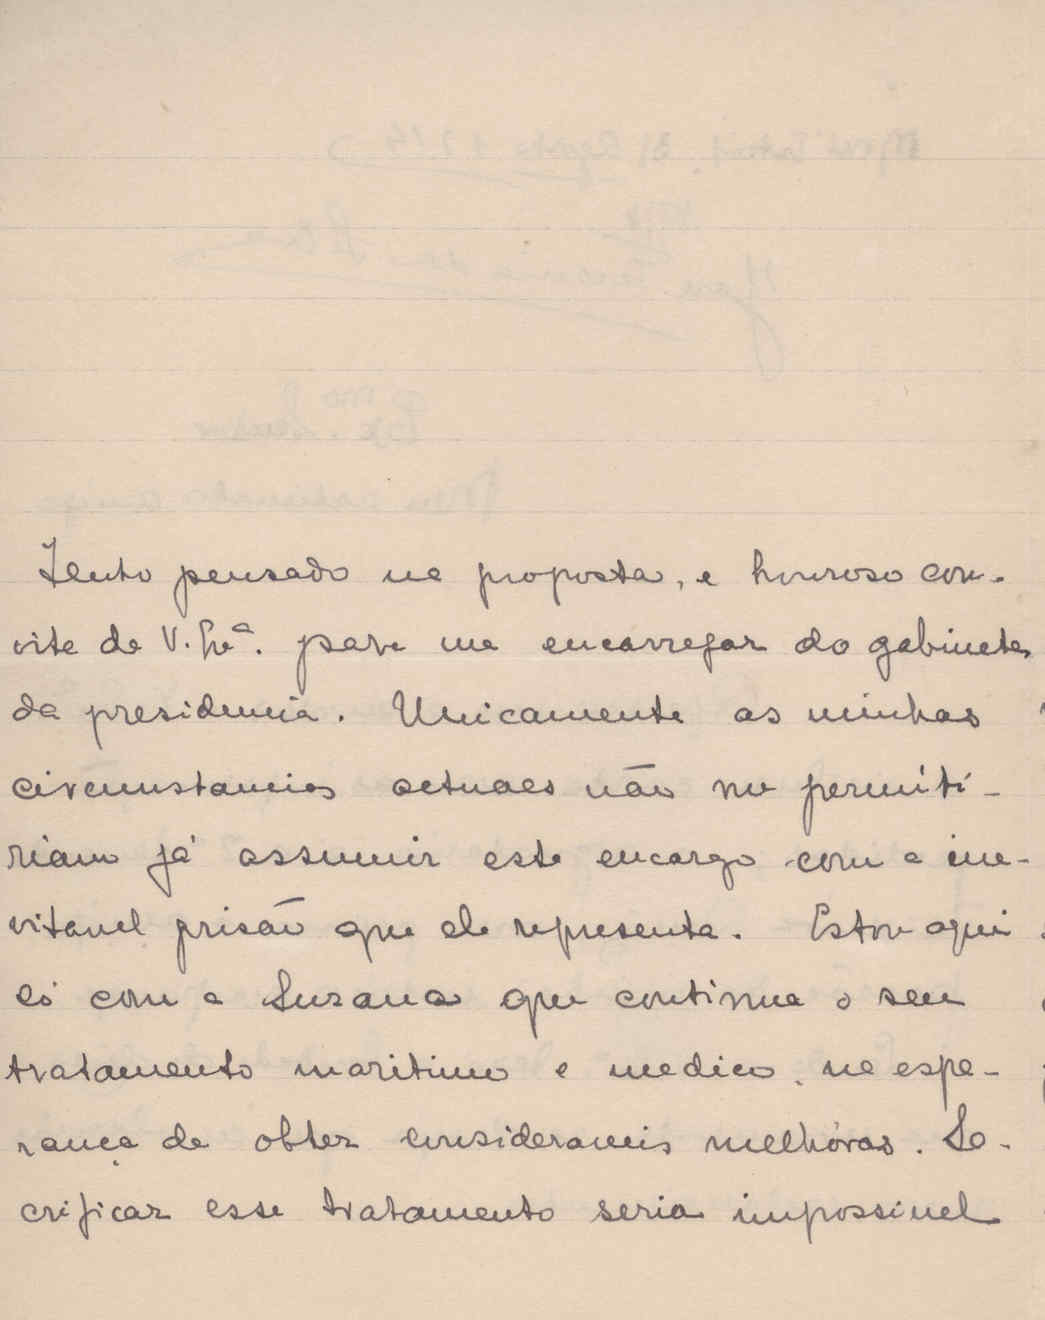 Tenho pensado na proposta, e honroso con-
vite de V. Exª. para me encarregar do gabinete
da presidencia. Unicamente as minhas
circumstancias actuaes não me permiti-
riam já assumir este encargo com a ine-
vitavel prisão que ele representa. Estou aqui
só com a Suzana que continua o seu
tratamento maritimo e medico, na espe-
rança de obter consideraveis melhóras. Sa-
crificar esse tratamento seria impossivel